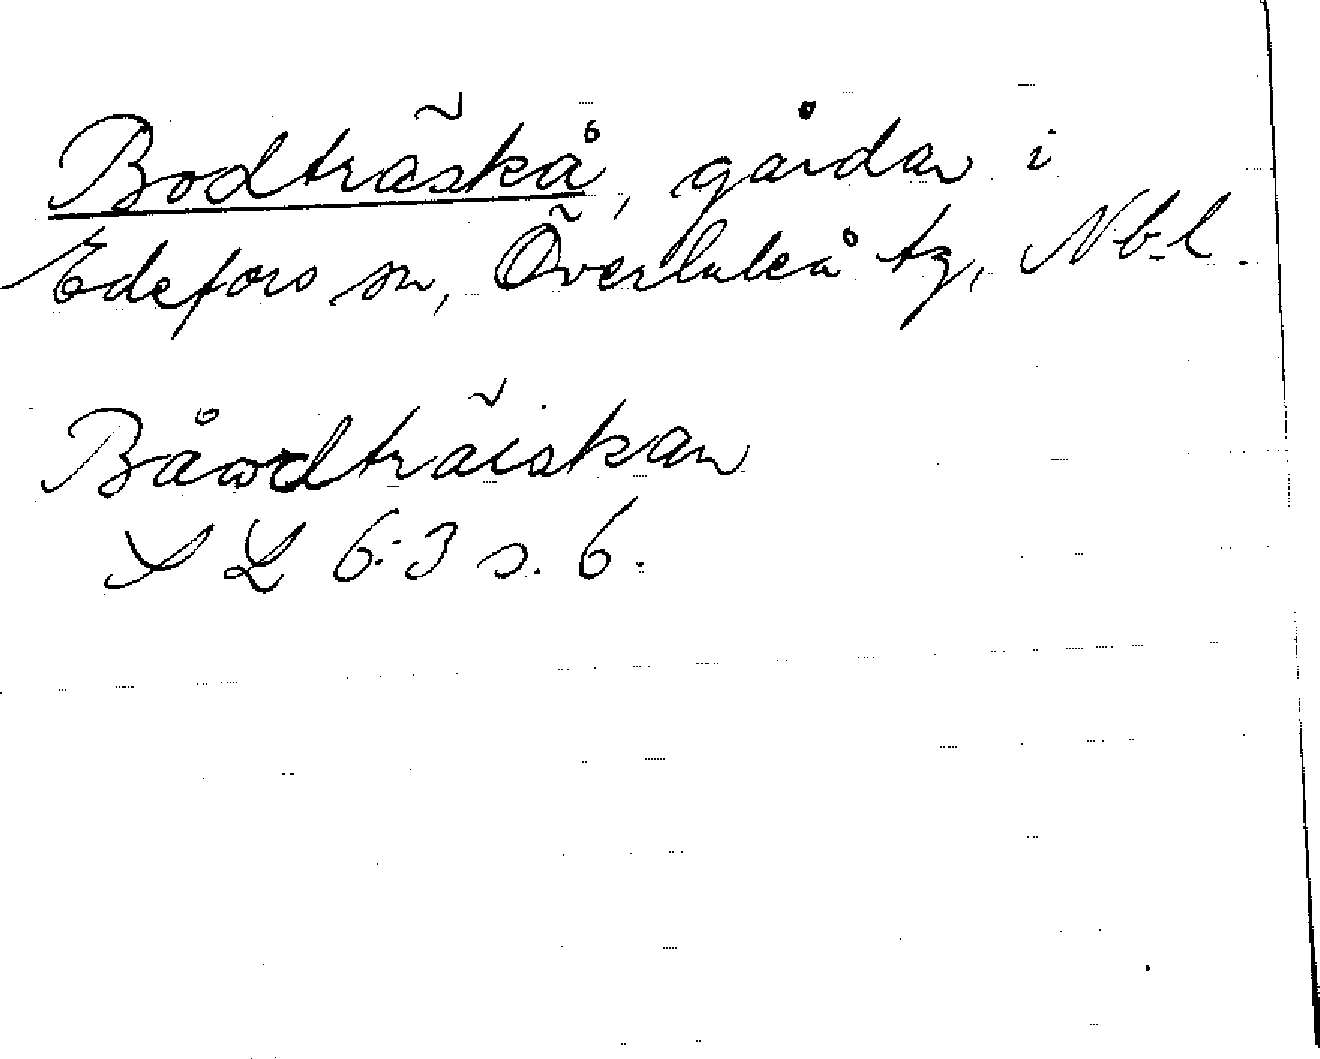 Bodträskå, gårdar i
Edefors sn, Överluleå tg, Nb.l.
Båwdträiskan
SL 6:3 s. 6.